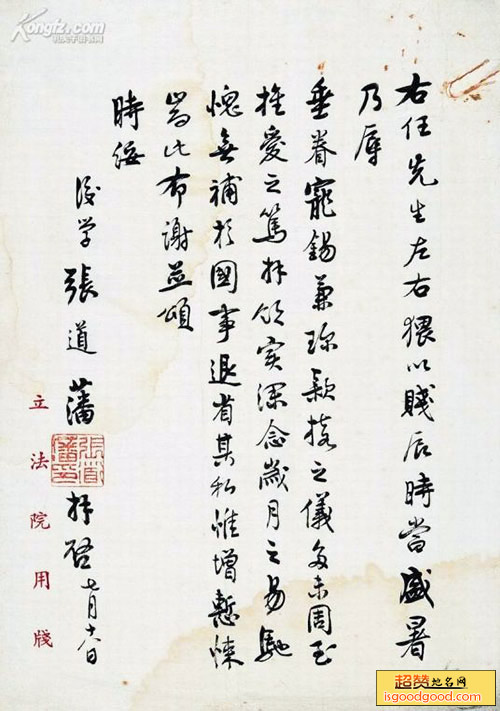 右任先生左右猥以賤辰時當盛暑
乃辱
垂眷寵錫兼珍款接之儀多未周至
推愛之篤拜領實深念歲月之易馳
愧無補於國事退省其私惟增慙悚
耑此布謝並頌
時綏
後學張道藩拜啓七月
張道藩印
立法院用牋
Kongfz.com
超赞地名网
isgoodgood.com